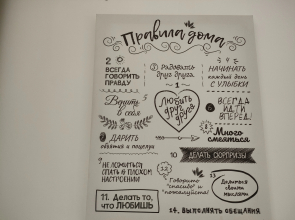 Правила дома
2
ВСЕГДА
ГОВОРИТЬ
ПРАВДУ
3 РАДОВАТЬ
друг друга
НАЧИНАТЬ
каждый день
С УЛЫБКИ
1
ЛЮБИТЬ
друг
друга
Верить
в себя
ВСЕГДА
ИДТИ
ВПЕРЕД!
ДАРИТЬ
объятия и поцелуи
Много
смеяться
НЕ ЛОЖИТЬСЯ
СПАТЬ В ПЛОХОМ
НАСТРОЕНИИ
10
ДЕЛАТЬ СЮРПРИЗЫ
11. Делать то,
что ЛЮБИШЬ
12
Говорить
"спасибо" и
"пожалуйста"
13
Делиться
своими
мыслями
14. ВЫПОЛНЯТЬ ОБЕЩАНИЯ